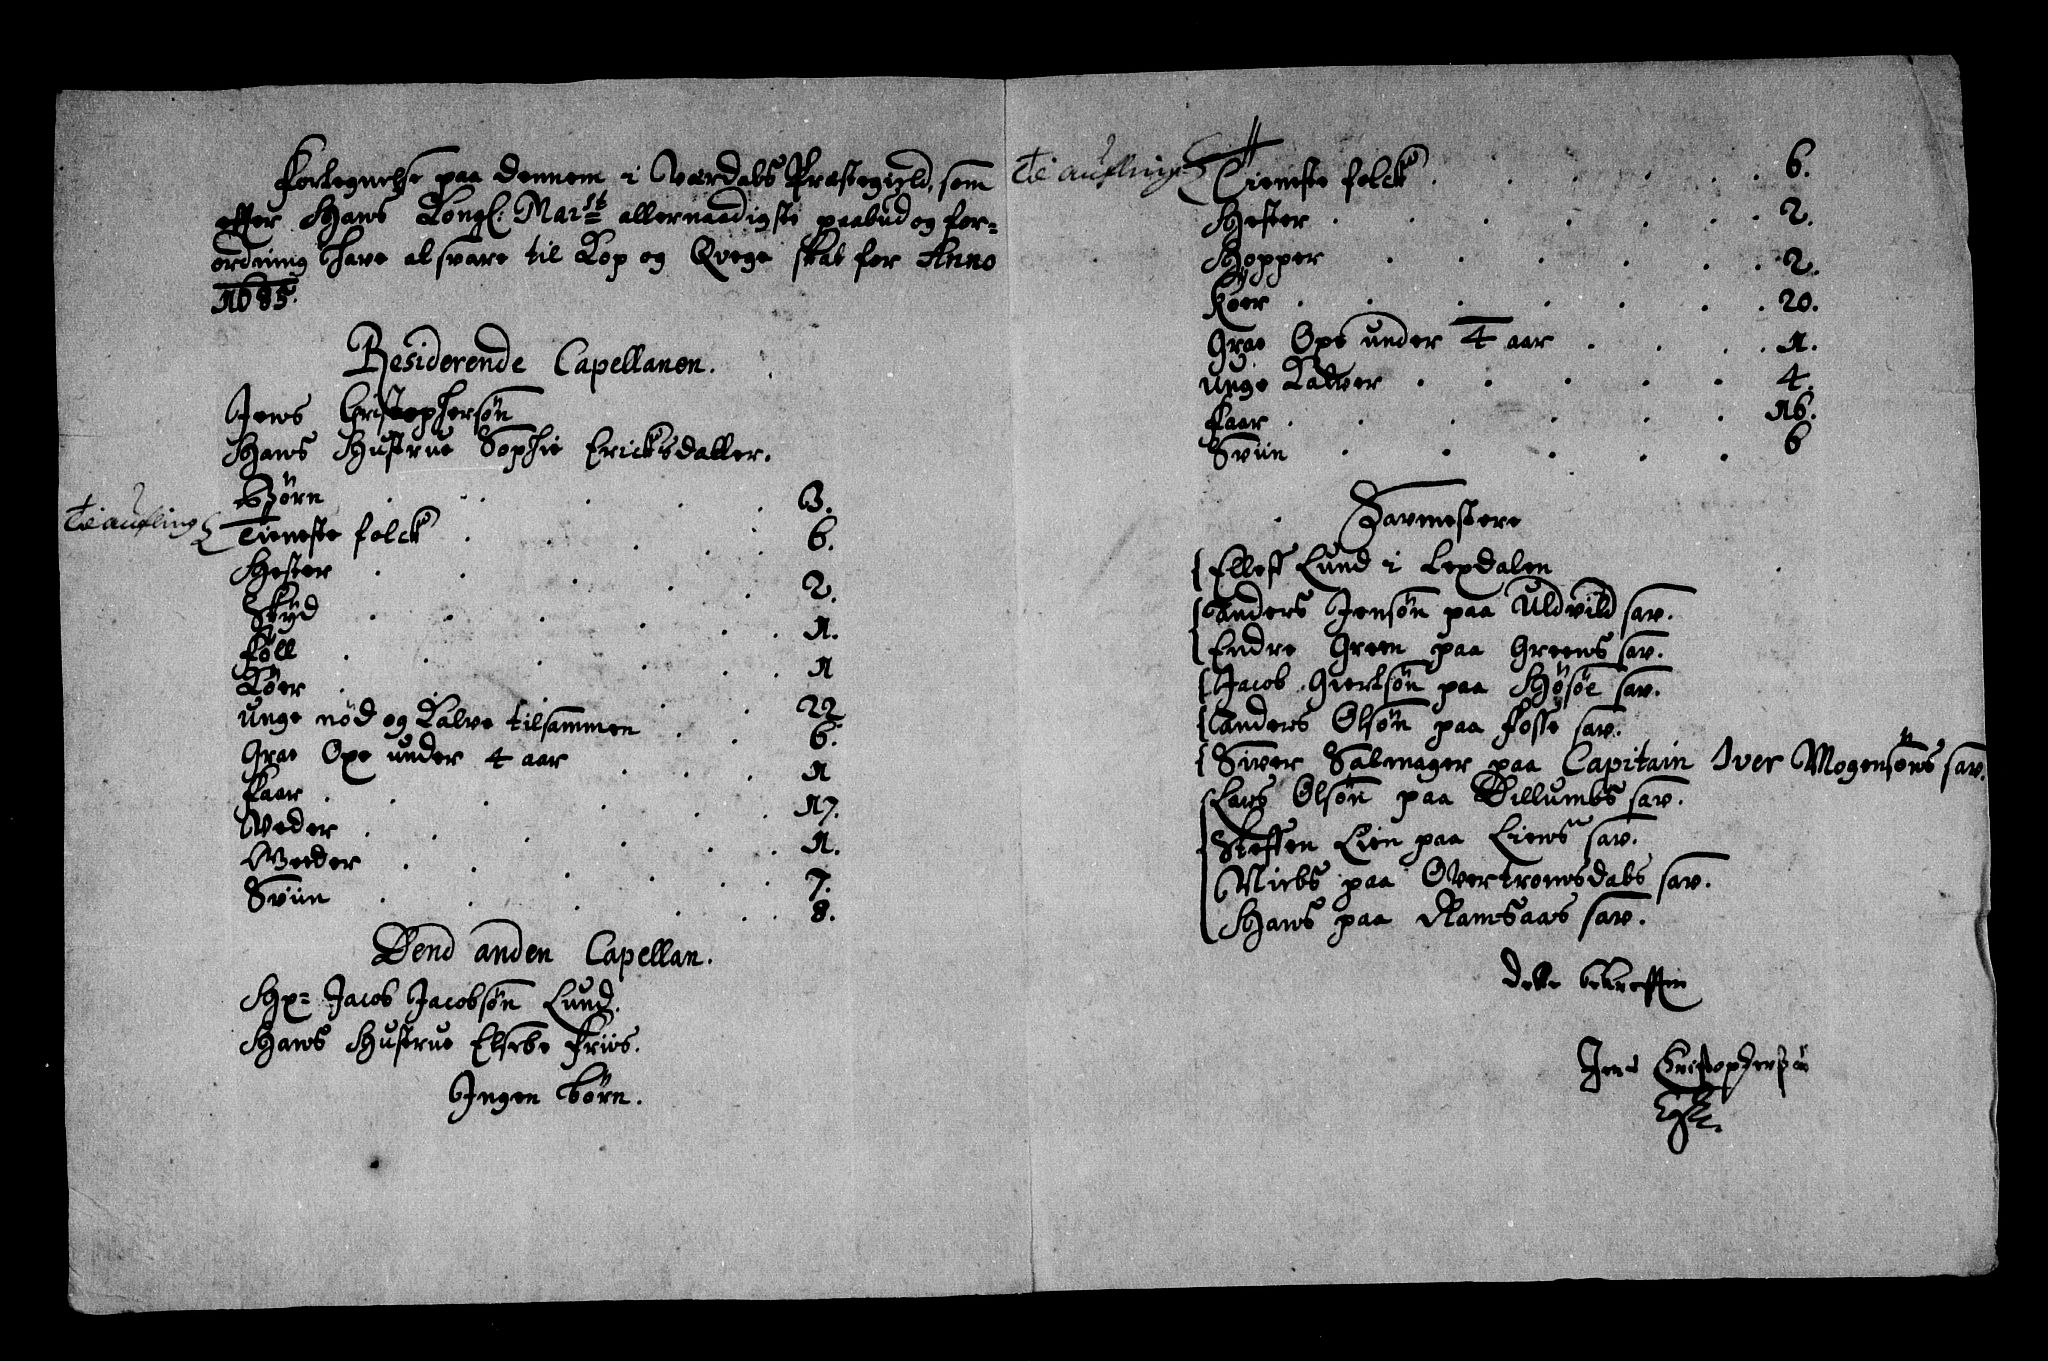 Fortegnelse paa dennem i Værdals Præstegield, som
efter Hans Kongl: Maistt allernaadigste paabud og for=
ordning have at svare til Kop og Qvege skat for Anno
1685.
Residerende Capellanen.
Jens Christophersøn
Hans Hustrue Sophie Ericksdatter.
Børn . . . . 3.
Til aufling
Tieneste folck . . . . 6.
Hester . . . . 2.
Skyd . . . . 1.
Føll . . . . 1
Køer . . . . 22
unge nød og Kalve tilsammen . . 6.
Grae Oxe under 4 aar . . . 1
Faar . . . . 17.
Veder . . . . 1.
Geeder . . . . 7.
Sviin . . . . 8.
Dend anden Capellan.
Hr= Jacob Jacobsøn Lund.
Hans Hustrue Elsebe Friis.
Ingen børn.
Til aufling
Tieneste folck . . . . 6.
Hester . . . . 2.
Hopper . . . . 2.
Køer . . . . 20.
Grae Oxe under 4 aar . . . 1.
unge Kalver . . . . 4.
Faar . . . . 16.
Sviin . . . . 6
Savmestere
Elleff Lund i Lexdalen
Anders Jensøn paa Uldvild sav.
Endre Green paa Greens sav.
Jacob Giertsøn paa Høsøe sav.
Anders Olsøn paa Fosse sav.
Siver Salmager paa Capitain Iver Mogensøns sav.
Lars Olsøn paa Dillumbs sav.
Steffen Lien paa Liens sav.
Niels paa Overtronsdals sav.
Hans paa Ramsaas sav.
Dette bekreffter
Jens Christophersøn